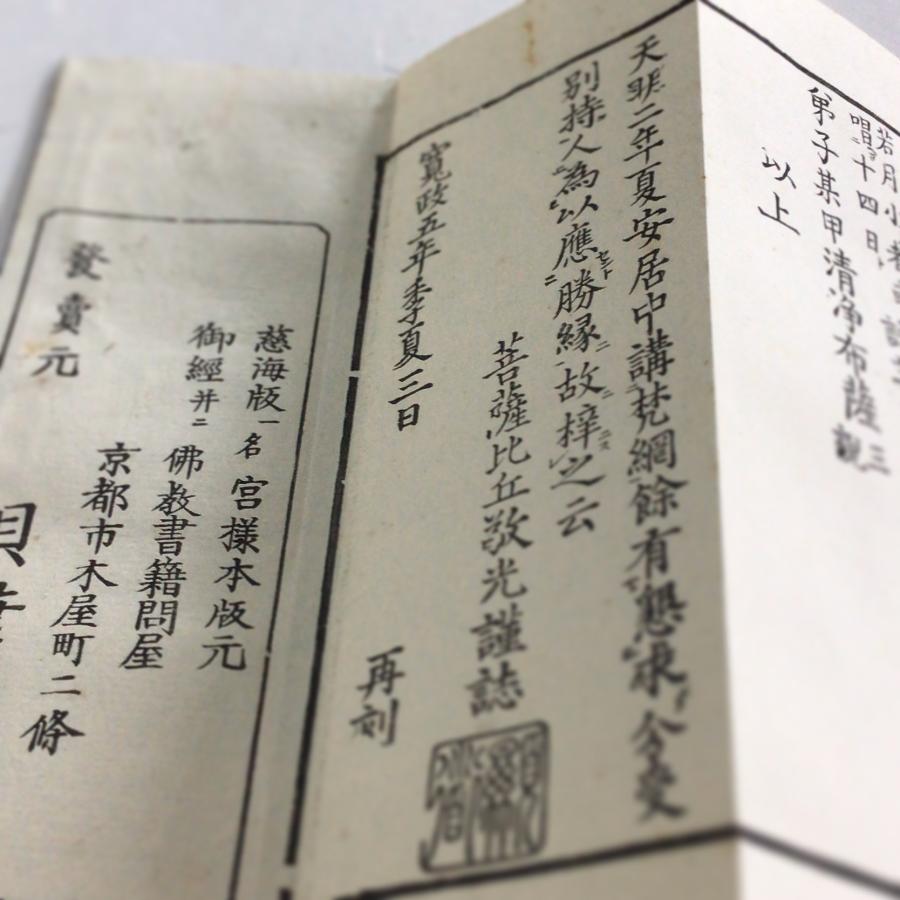 若月小
唱十四日
弟子某甲清净布薩
以上
天明二年夏安居中講梵網餘有懇求今受
別持人為以應勝縁故梓之云
菩薩比丘敬光謹誌
寬政五年季夏三日
再刻
慈海版一名宮様本版元
御經并ニ佛教書籍問屋
京都市木屋町二條
發賣元